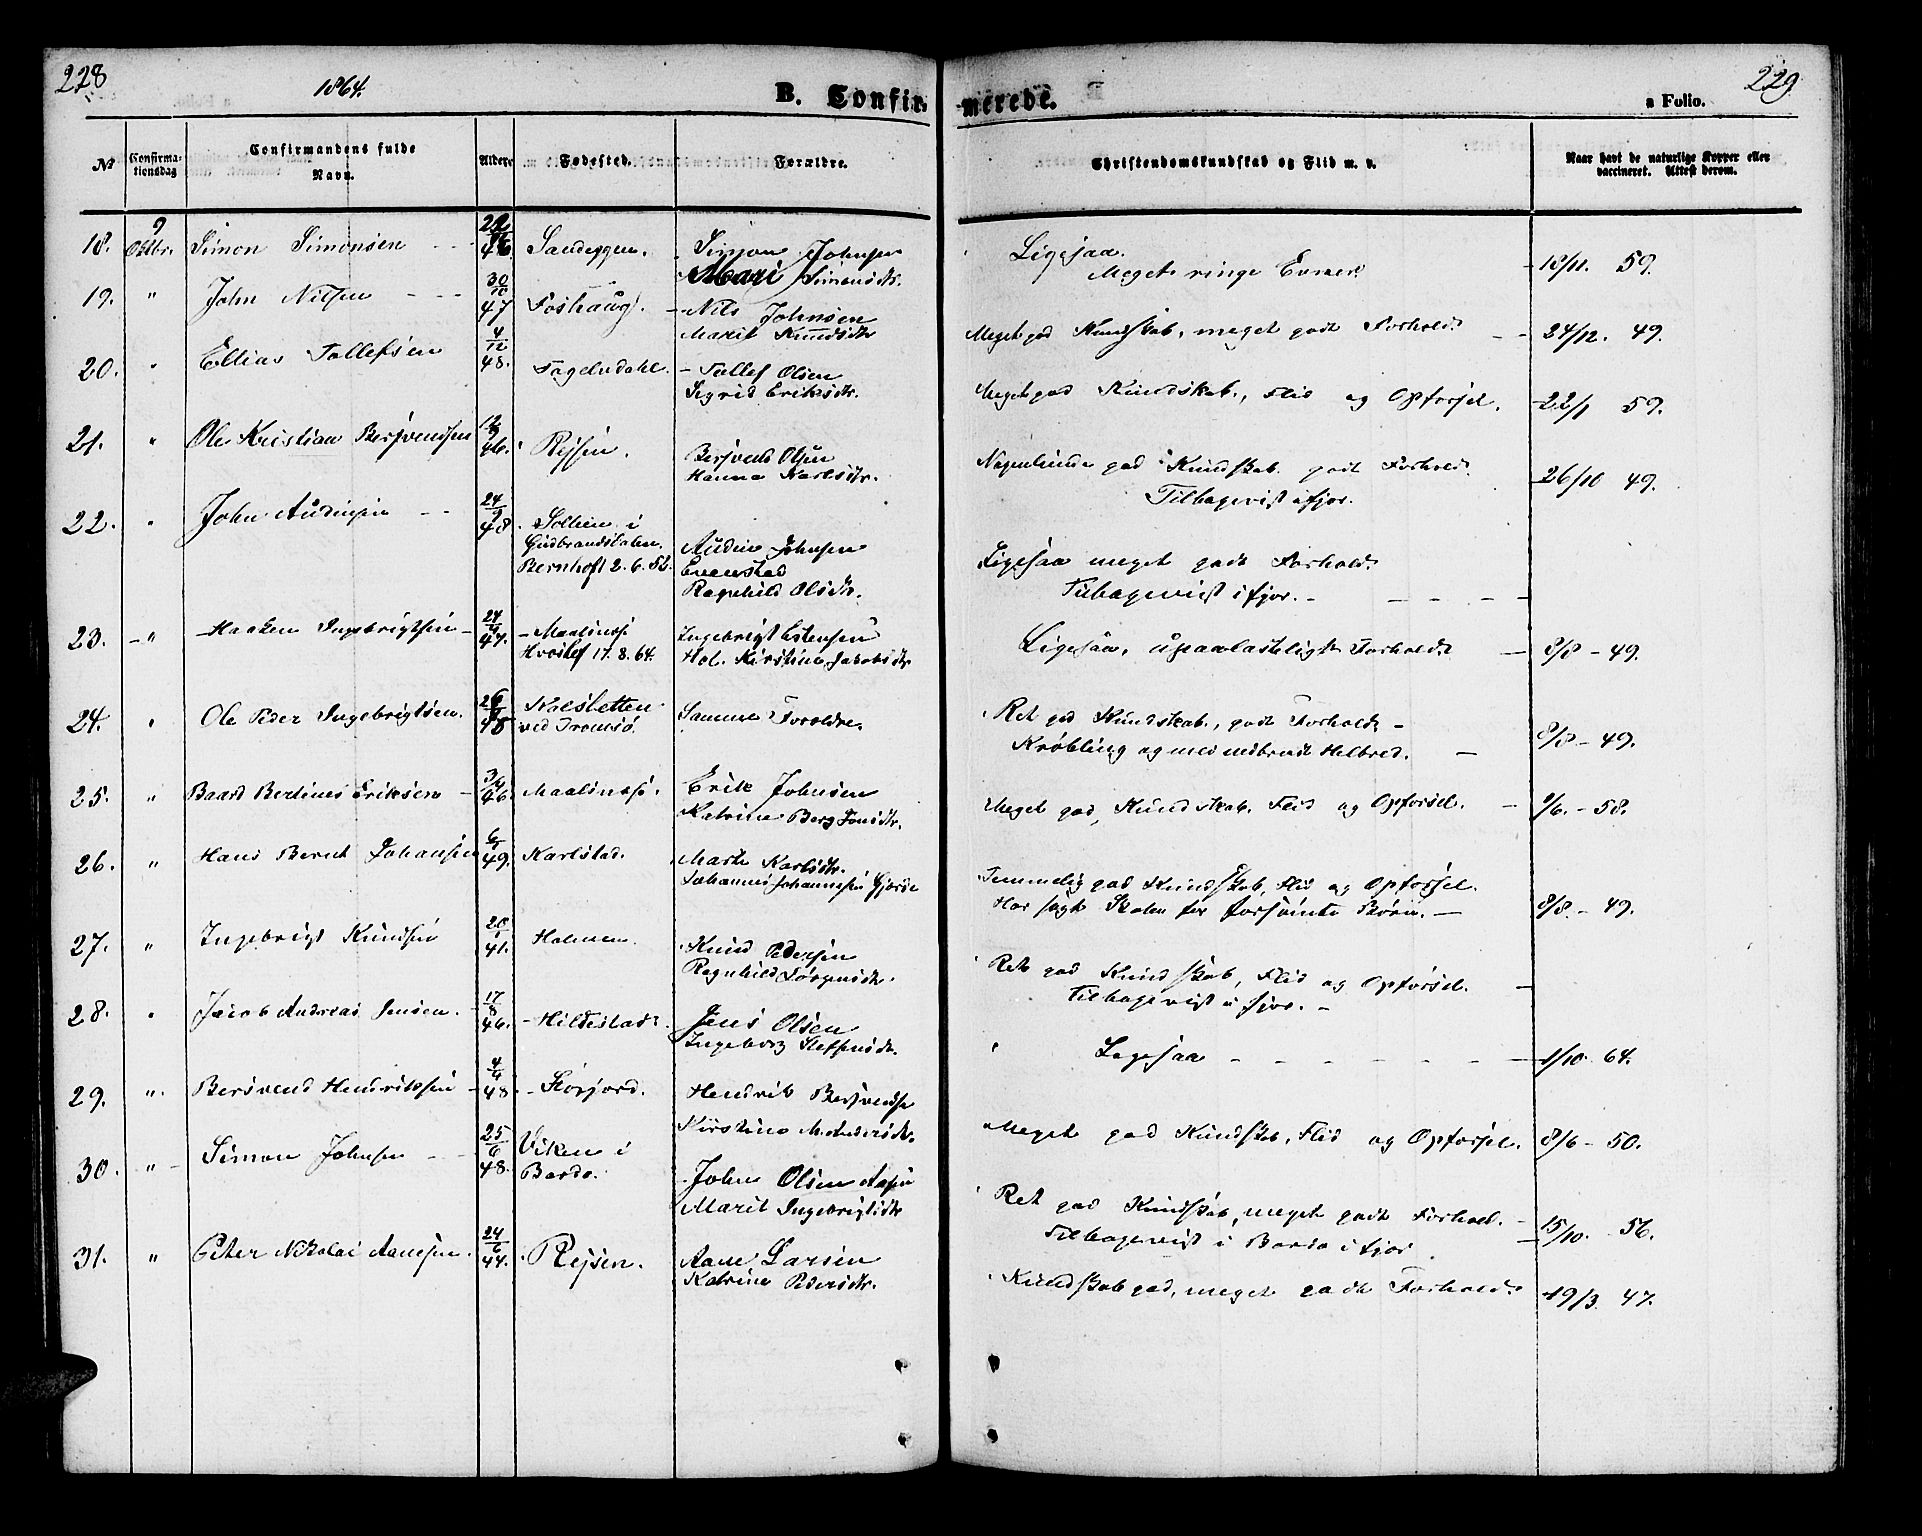 228
1864.
B. Confir-
merede.
a Folio.
229
No
Confirma-
tionsdag
Confirmandens fulde
Navn.
Alder.
Fødested.
Forældre.
Christendomskundskab og Flid m. v.
Naar havt de naturlige Kopper eller
vaccineret. Attest derom.
18. 9 Oktbr. Simon Simonsen 46 Sandeggen. Simon Johnsen
Mari Simonsdtr.
Ligesaa.
Meget ringe Evner. 18/11. 59.
19. " John Nilsen 30/10 47 Foshaug. Nils Johnsen
Marit Knudsdtr
Meget god Kundskab, meget godt Forhold. 24/12. 49.
20. " Ellias Tollefsen 4/12 48. Fagerlidahl. Tollef Olsen
Sigrid Eriksdtr.
Meget god Kundskab, Flid og Opførsel. 22/1 59.
21. " Ole Kristian Bersvendsen 46. Rejsen. Bersvend Olsen
Hanna Karlsdtr.
Nogenlunde god Kundskab godt Forhold.
Tilbagevist ifjor. 26/10 49.
22. " John Audunsen 24/9 48. Sollien i
Gudbrandsdalen.
Bernhoft 2. 6. 52.
Audun Johnsen
Evenstad
Ragnhild Olsdtr.
Ligesaa meget godt Forhold.
Tilbagevist i fjor.
23. " Haaken Ingebrigtsen 24/4 47. Maalsnesi
Hvoslef 17. 8. 64.
Ingebrigt Estensen
Hol. Kirstine Jakobsdtr
Ligesaa, upaaklageligt Forhold. 8/8 - 49.
24. " Ole Peder Ingebrigtsen. 48 Kalsletten
ved Tromsø.
Samme Forældre.
Ret god Kundskab, godt Forhold -
Krøbling og med nedbrudt Helbred. 8/8 - 49.
25. " Baard Bertinus Eriksen 46. Maalsnesi. Erik Johnsen
Katrine Berg Jonsdtr.
Meget god, Kundskab, Flid og Opførsel. 9/6. - 58.
26. " Hans Bernt Johansen 49. Karlstad. Marte Karlsdtr.
Johannes Johannesen Gjerde
Temmelig god Kundskab, Flid og Opførsel.
Har søgt Skolen for forsømte Børn. 8/8 - 49.
27. " Ingebrigt Knudsen 41. Holmen. Knud Pedersen
Ragnhild Jørgensdtr.
Ret god Kundskab, Flid og Opførsel.
Tilbagevist i fjor.
28. " Jacob Andreas Jensen. 17/8 46. Hildestad. Jens Olsen
Ingeborg Steffensdtr.
Ligesaa 1/10. 64.
29. " Bersvend Henriksen 4/4 48. Storjord. Hendrik Bersvendsen
Kirstine M. Andersdtr.
Meget god Kundskab, Flid og Opførsel. 8/6 - 50.
30. " Simon Johnsen 25/6 48. Viken i
Bardo.
John Olsen
Marit Ingebrigtsdtr
Ret god Kundskab, meget godt Forhold.
Tilbagevist i Bardo i fjor. 15/10. 56.
31. " Peter Nikolai Aanesen. 24/6 44. Rejsen. Aane Larsen
Katrine Pedersdtr.
Kundskab god, meget godt Forhold. 19/3. 47.